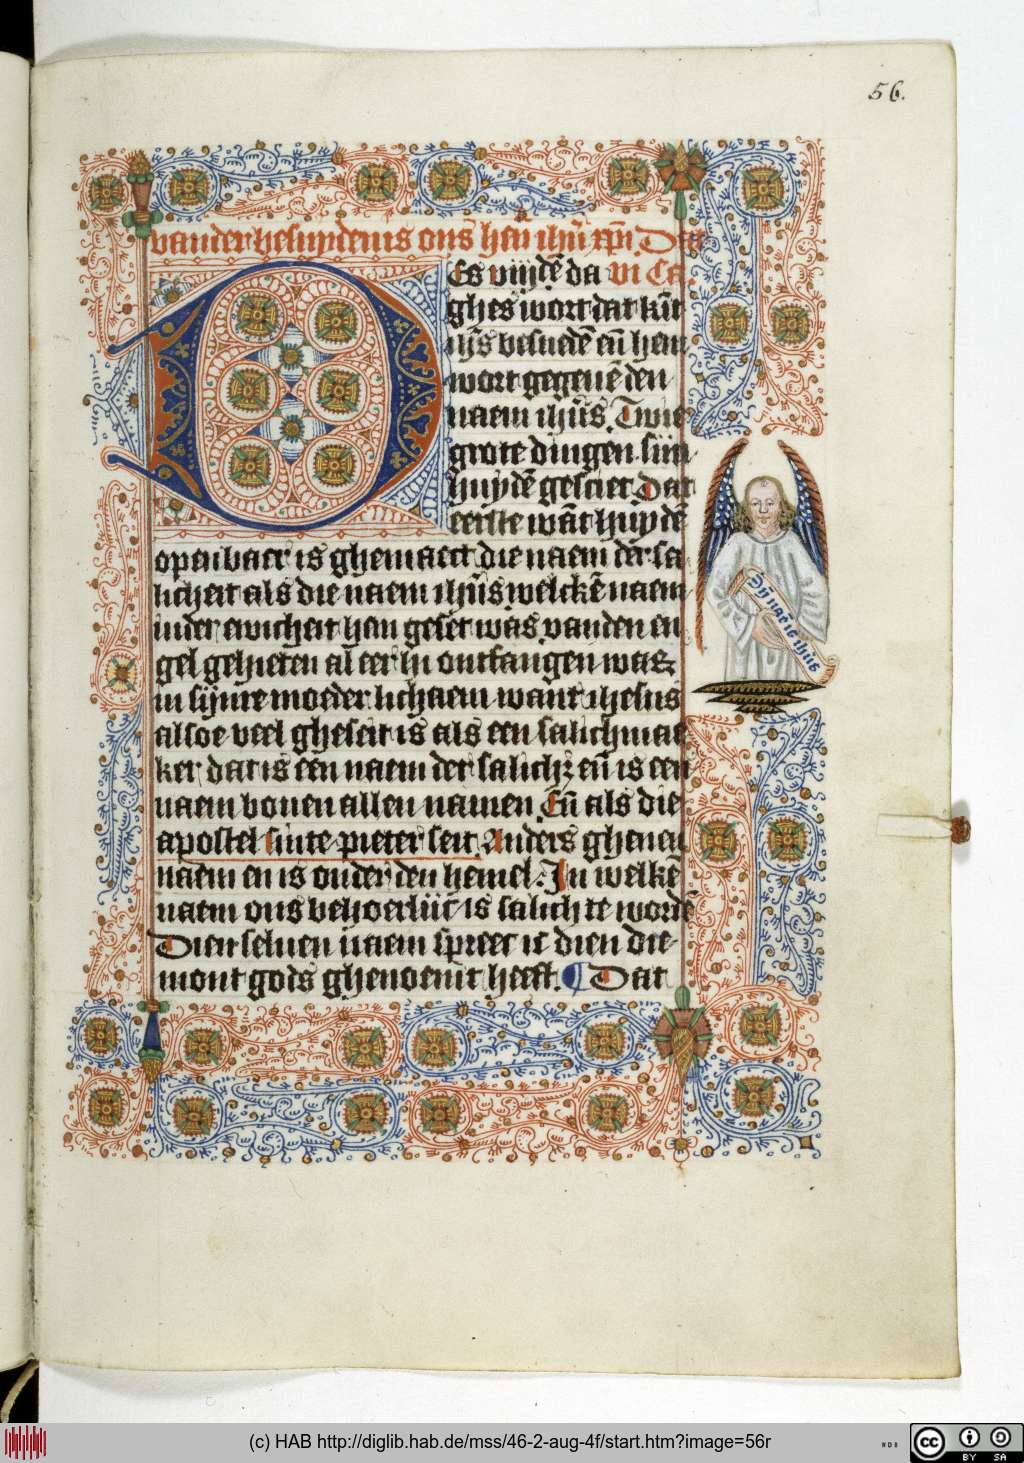 56.
vander besnydenis ons hen ihu xpi Dat
Es viijdē da vi Ca.
ghes wort dat kīt
ihs besnedē eñ hem
wort gegeuē den
naem ihūs. Twie
grote dingen sijn
huydē gesciet. Dat
eerste wāt huydē
openbaer is ghemaect die naem der sa
licheit als die naem ihūs welckē naem
inder ewicheit hem geset was vanden en
gel gehieten al eer hi ontfangen was
in sijnre moeder lichaem want ihesus
alsoe veel gheseit is als een salichmae
ker dat is een naem der salichz eñ is een
naem bouen allen namen Eñ als die
apostel sinte pieter seit. Anders ghenen
naem en is onder den hemel. In welkē
naem ons behoerlijc is salich te wordē
Dien seluen naem spreec ic dien die
mont gods ghenoemt heeft. Dat
Sij naē is ihūs
(c) HAB http://diglib.hab.de/mss/46-2-aug-4f/start.htm?image=56r
cc BY SA